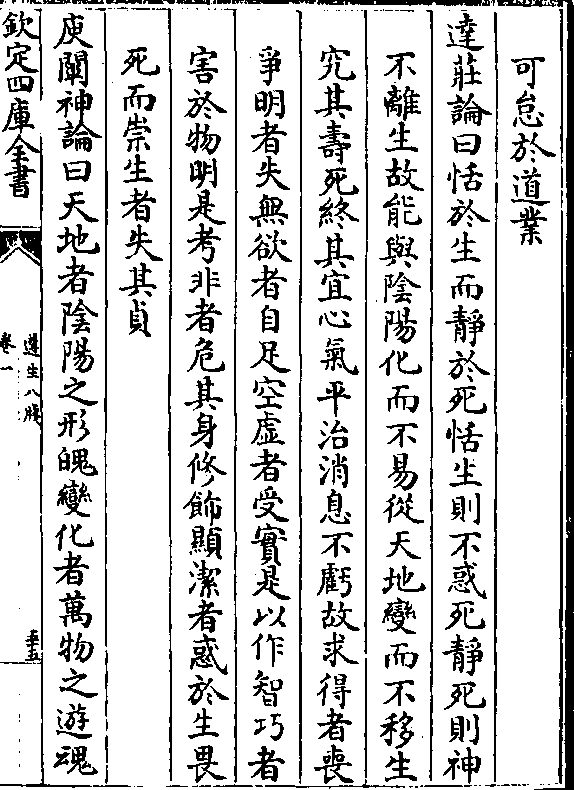 可怠於道業
達莊論曰恬於生而靜於死恬生則不惑死靜死則神
不離生故能與陰陽化而不易從天地變而不移生
究其壽死終其宜心氣平治消息不虧故求得者喪
爭明者失無欲者自足空虛者受實是以作智巧者
害於物明是考非者危其身修飾顯潔者惑於生畏
死而崇生者失其貞
庾闡神論曰天地者陰陽之形魄變化者萬物之遊魂
欽定四庫全書
遵生八牋
卷一
五五